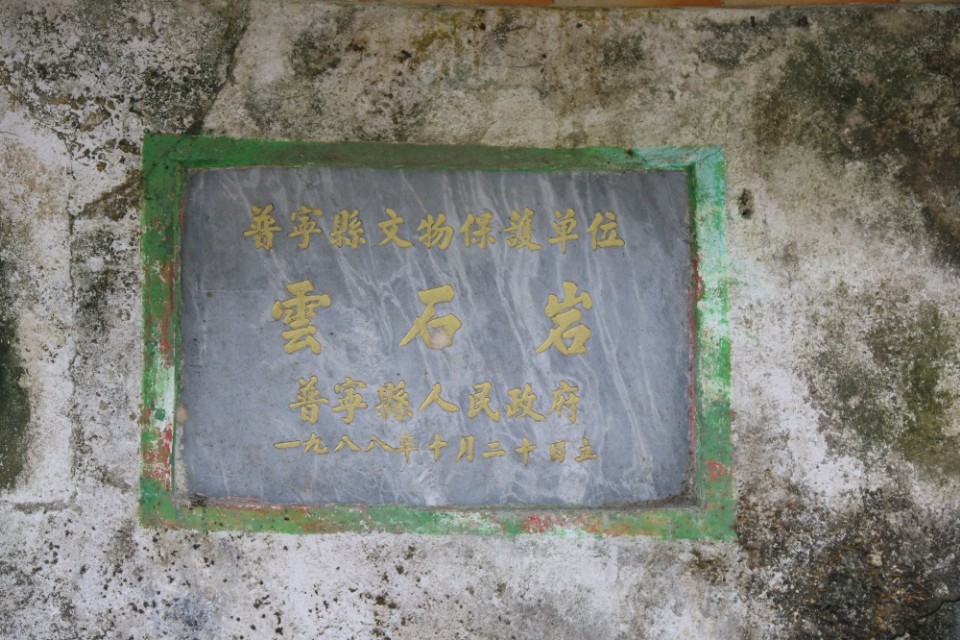 普寧縣文物保護単位
雲石岩
普寧縣人民政府
一九八八年十月二十日立